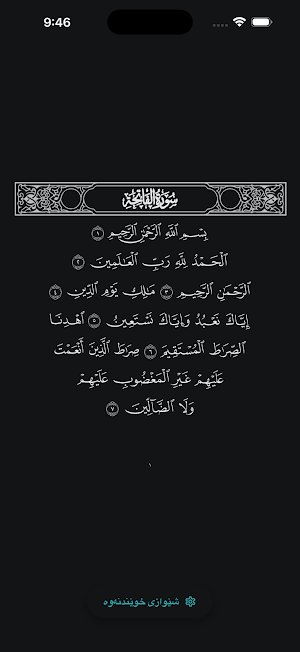 9:46
سُورَةُ الفَاتِحَة
بِسْمِ ٱللَّهِ ٱلرَّحْمَٰنِ ٱلرَّحِيمِ ١
ٱلْحَمْدُ لِلَّهِ رَبِّ ٱلْعَٰلَمِينَ ٢
ٱلرَّحْمَٰنِ ٱلرَّحِيمِ ٣ مَٰلِكِ يَوْمِ ٱلدِّينِ ٤
إِيَّاكَ نَعْبُدُ وَإِيَّاكَ نَسْتَعِينُ ٥ ٱهْدِنَا
ٱلصِّرَٰطَ ٱلْمُسْتَقِيمَ ٦ صِرَٰطَ ٱلَّذِينَ أَنْعَمْتَ
عَلَيْهِمْ غَيْرِ ٱلْمَغْضُوبِ عَلَيْهِمْ
وَلَا ٱلضَّآلِّينَ ٧
١
شێوازی خوێندنەوە